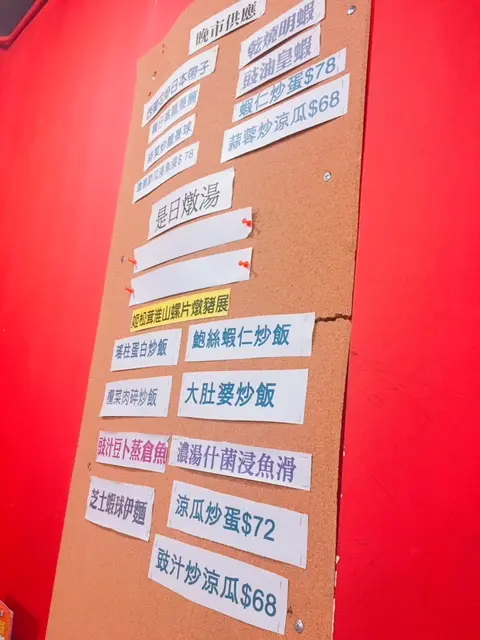 晚市供應
乾燒明蝦
豉油皇蝦
蝦仁炒蛋$78
蒜蓉炒涼瓜$68
是日燉湯
姬松茸淮山螺片燉豬展
瑤柱蛋白炒飯
鮑絲蝦仁炒飯
欖菜肉碎炒飯
大肚婆炒飯
豉汁豆卜蒸倉魚
濃湯什菌浸魚滑
芝士蝦球伊麵
涼瓜炒蛋$72
豉汁炒涼瓜$68